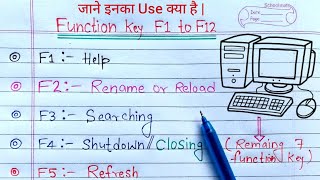 जाने इनका Use क्या है |
Function Key F1 to F12
Date
Page
F1 :- Help
F2 :- Rename or Reload
F3 :- Searching
F4 :- Shutdown // Closing
( Remaing 7
function key )
F5 :- Refresh